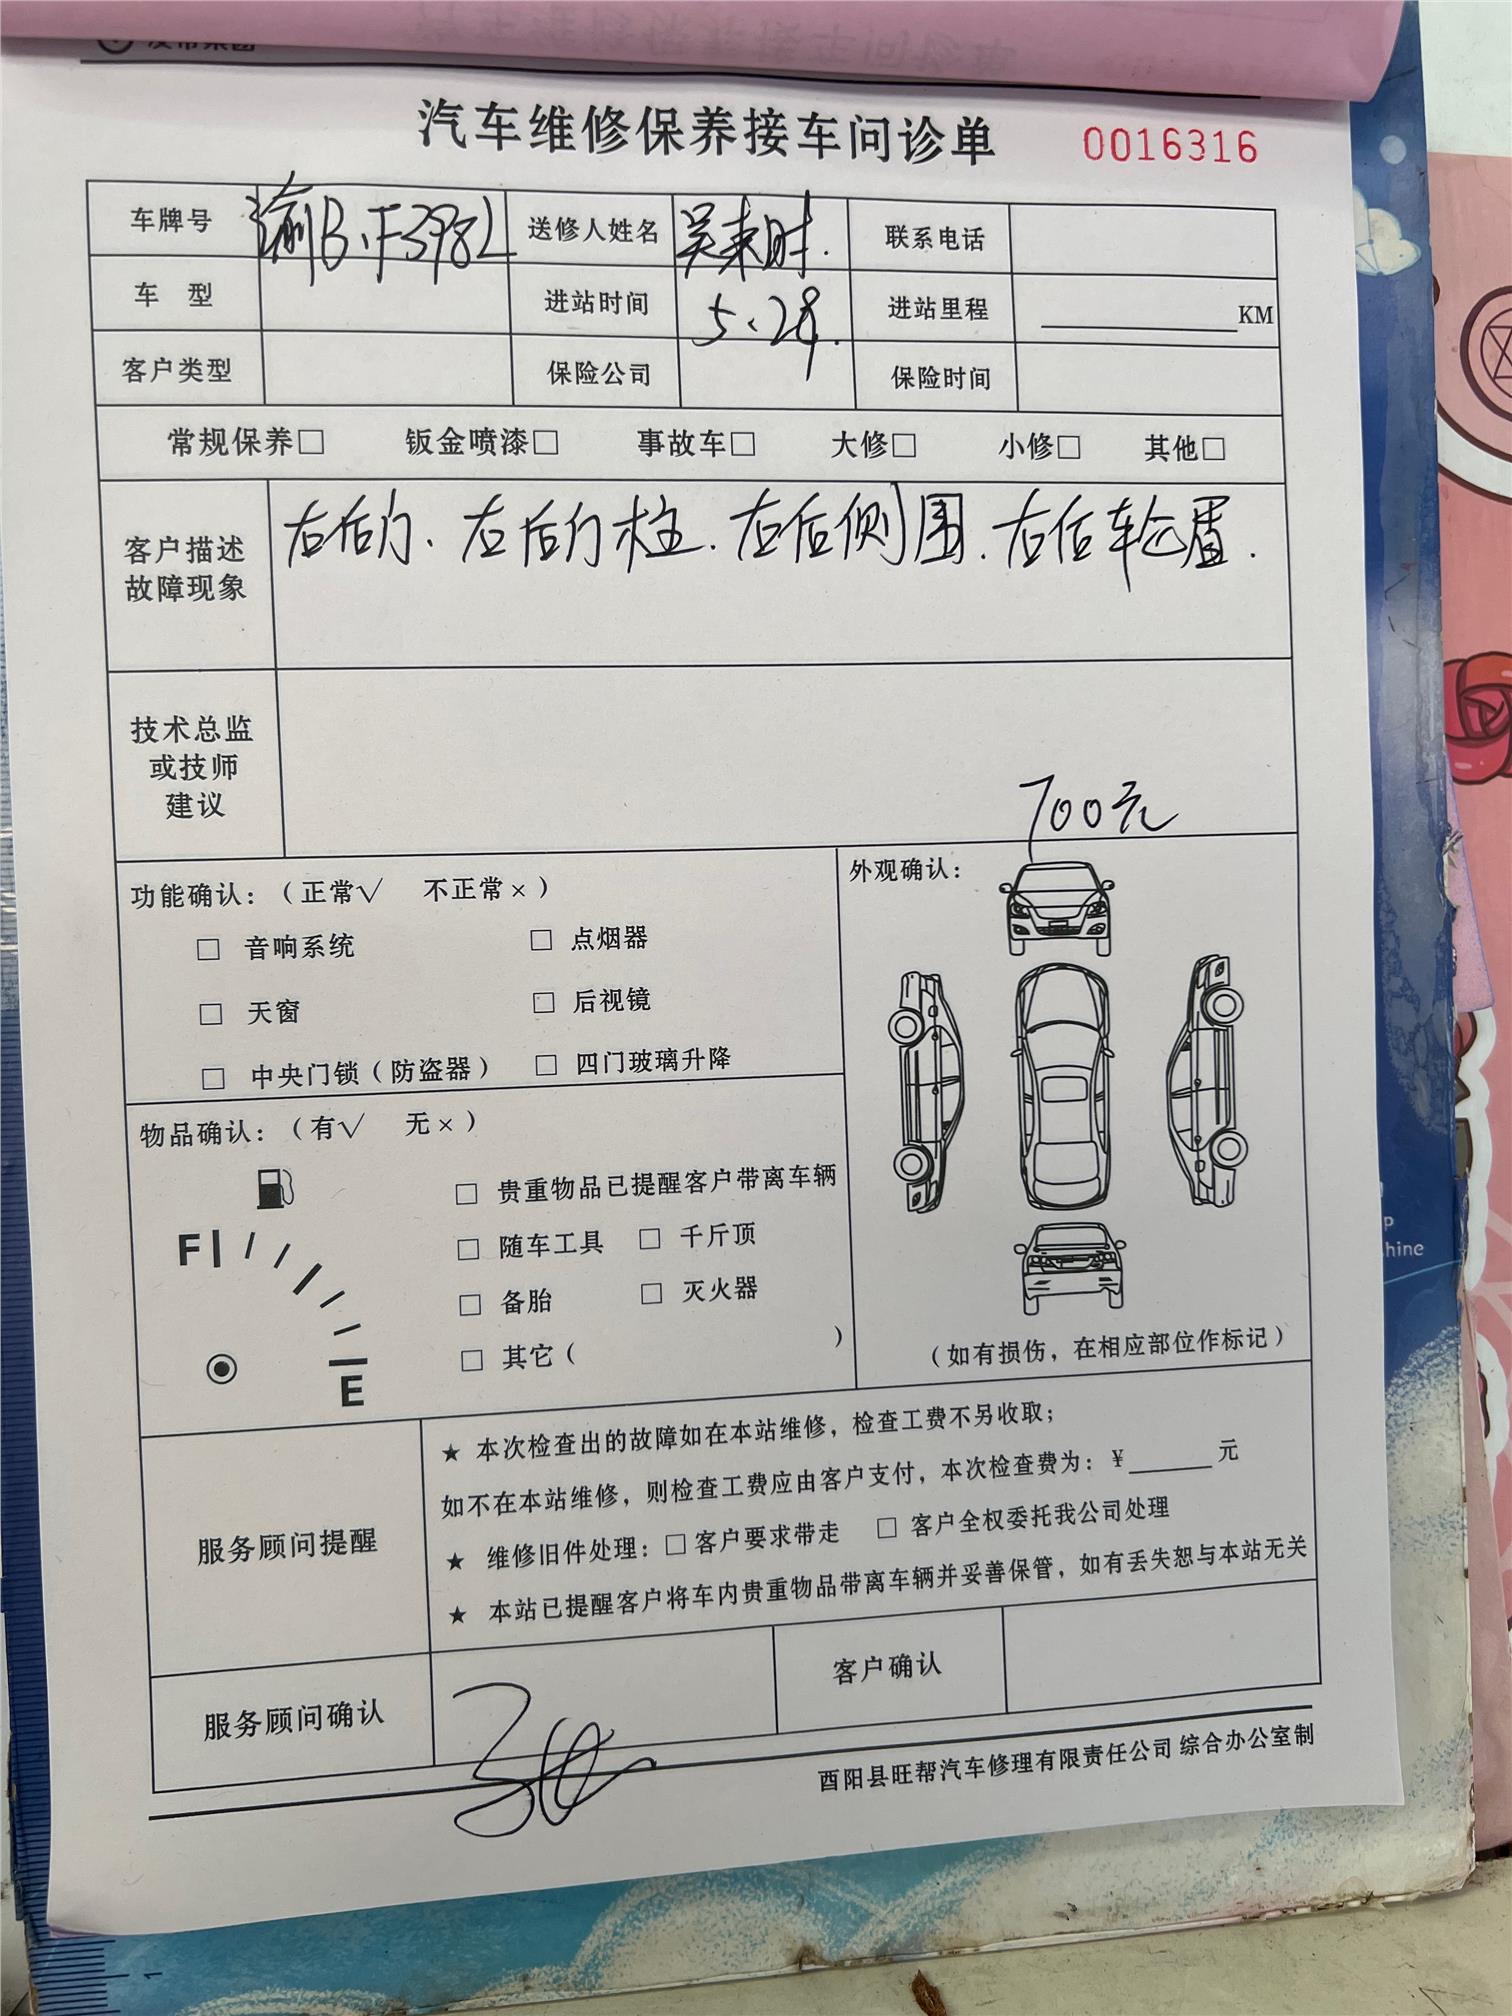 汽车维修保养接车问诊单 0016316
车牌号 渝B·F398L 送修人姓名 吴来时. 联系电话
车 型 进站时间 5.28. 进站里程 KM
客户类型 保险公司 保险时间
常规保养□ 钣金喷漆□ 事故车□ 大修□ 小修□ 其他□
客户描述
故障现象
右后门、右后门柱.右后侧围.右后轮眉.
技术总监
或技师
建议
700元
功能确认：（正常√ 不正常×）
□ 音响系统 □ 点烟器
□ 天窗 □ 后视镜
□ 中央门锁（防盗器） □ 四门玻璃升降
外观确认：
（如有损伤，在相应部位作标记）
物品确认：（有√ 无×）
F
E
□ 贵重物品已提醒客户带离车辆
□ 随车工具 □ 千斤顶
□ 备胎 □ 灭火器
□ 其它（ ）
服务顾问提醒
★ 本次检查出的故障如在本站维修，检查工费不另收取；
如不在本站维修，则检查工费应由客户支付，本次检查费为：￥ 元
★ 维修旧件处理：□客户要求带走 □ 客户全权委托我公司处理
★ 本站已提醒客户将车内贵重物品带离车辆并妥善保管，如有丢失恕与本站无关
服务顾问确认 客户确认
酉阳县旺帮汽车修理有限责任公司 综合办公室制
hine